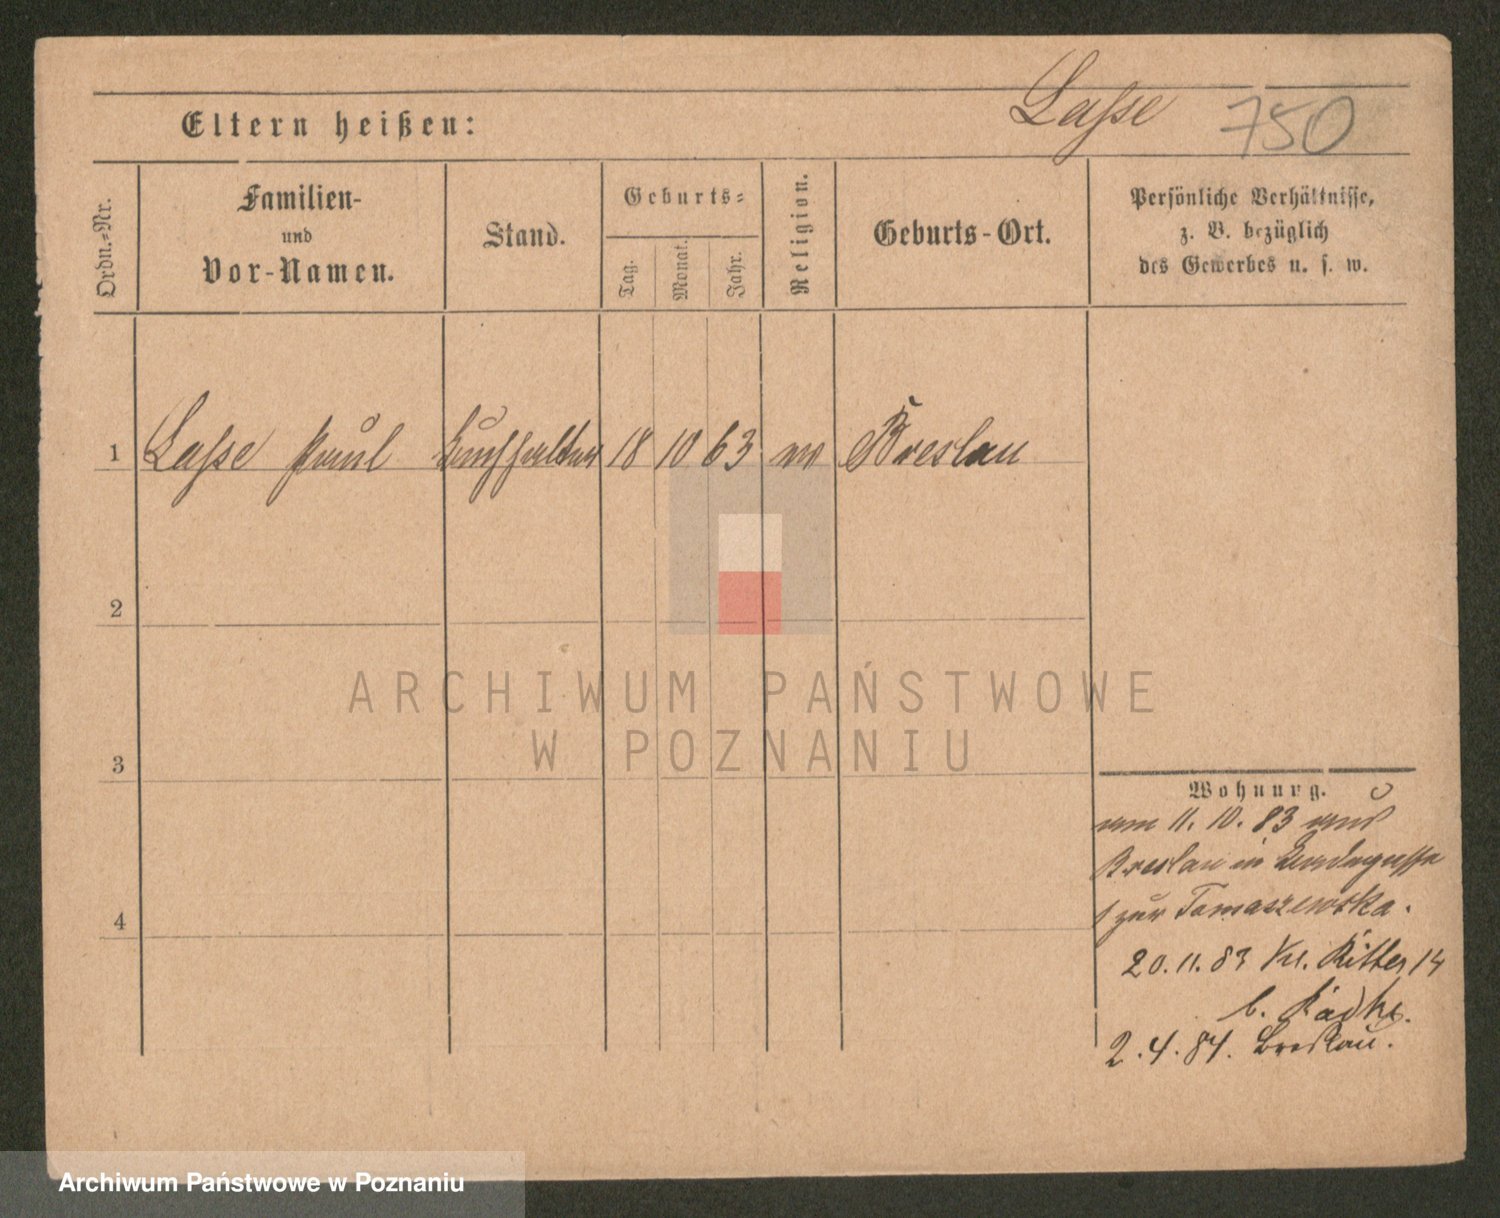 Lasse 750
Eltern heißen:
Ordn.-Nr.
Familien-
und
Vor-Namen.
Stand.
Geburts-
Tag.
Monat.
Jahr.
Religion.
Geburts-Ort.
Persönliche Verhältnisse,
z. B. bezüglich
des Gewerbes u. s. w.
1 Lasse Paul Buchhalter 18 10 63 Breslau
2
3
4
Wohnung.
11. 10. 83
Breslau in
zur Tomaszewska.
20. 11. 83 Kl. Ritter 14
b. Radke.
2. 4. 84. Breslau.
ARCHIWUM PAŃSTWOWE
W POZNANIU
Archiwum Państwowe w Poznaniu